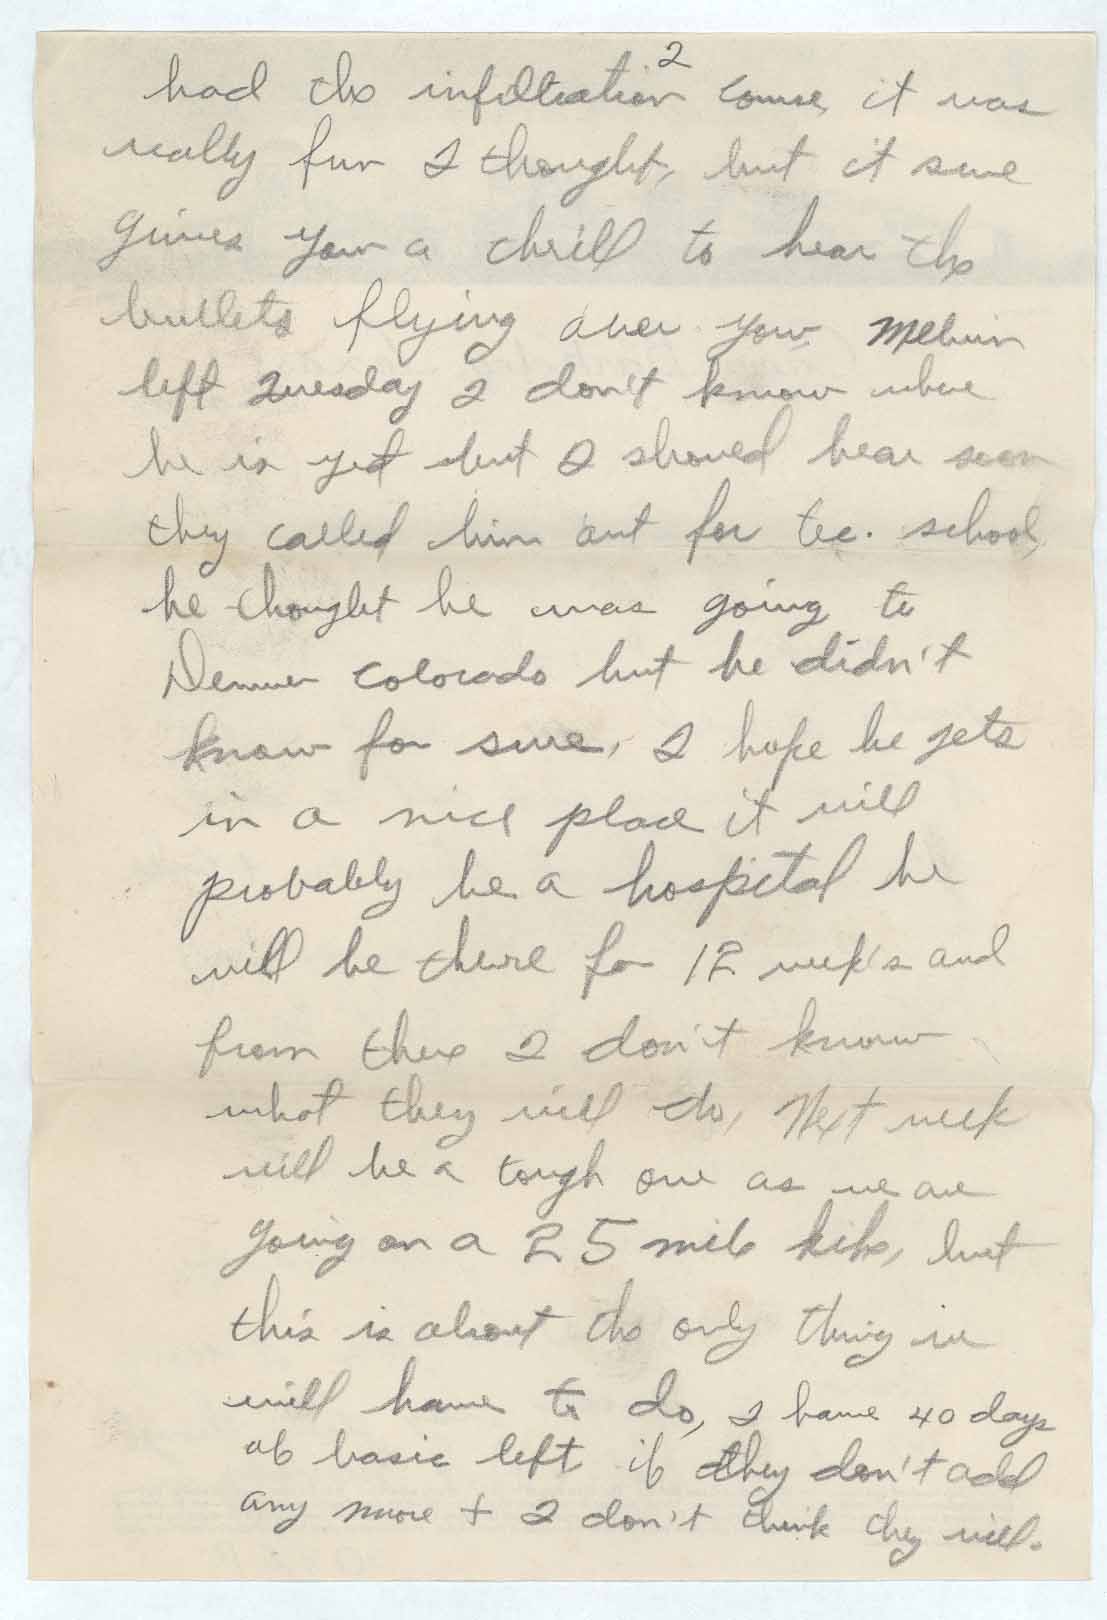 2
had the infiltration course, it was
really fun I thought, but it sure
gives you a thrill to hear the
bullets flying over you, Melvin
left Tuesday I don't know where
he is yet but I should hear soon
they called him out for tec. school,
he thought he was going to
Denver Colorado but he didn't
know for sure, I hope he gets
in a nice place it will
probably be a hospital he
will be there for 12 week's and
from there I don't know
what they will do, Next week
will be a tough one as we are
going on a 25 mile hike, but
this is about the only thing we
will have to do, I have 40 days
of basic left if they don't add
any more + I don't think they will.